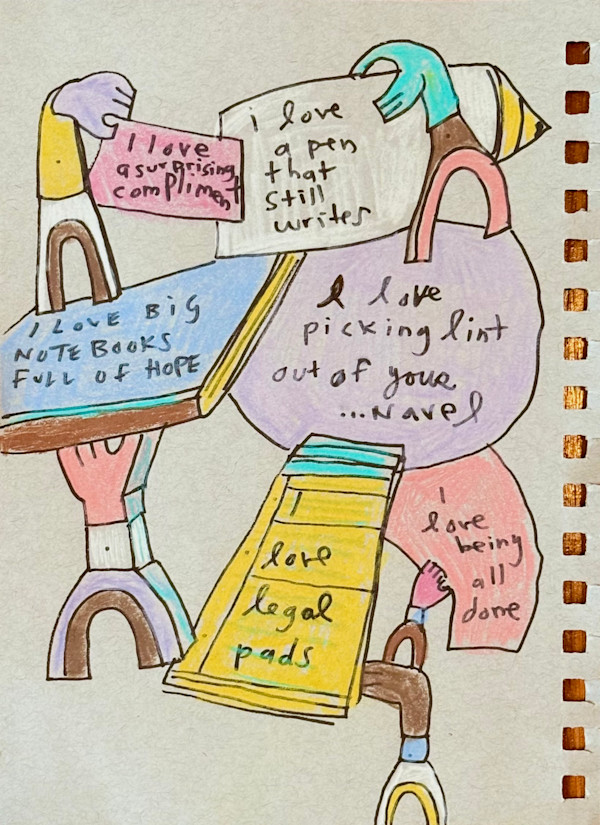 I love
a surprising
compliment
i love
a pen
that
still
writes
I LOVE BIG
NOTEBOOKS
FULL OF HOPE
I love
picking lint
out of your
...navel
I
love
legal
pads
I
love
being
all
done